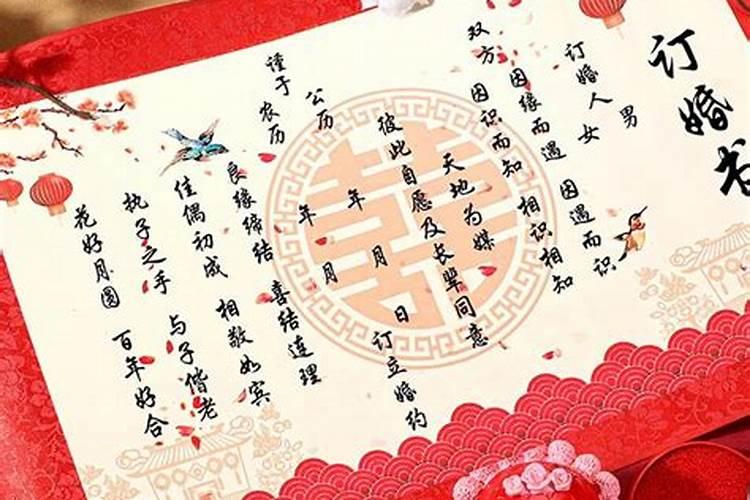 订婚书
男
订婚人 女
双方
因缘而遇 因遇而识
因识而知 相识相知
天地为媒
彼此自愿及长辈同意
谨于
公历 年 月 日
农历 年 月
订立婚约
良缘缔结 喜结连理
佳偶初成 相敬如宾
执子之手 与子偕老
花好月圆 百年好合